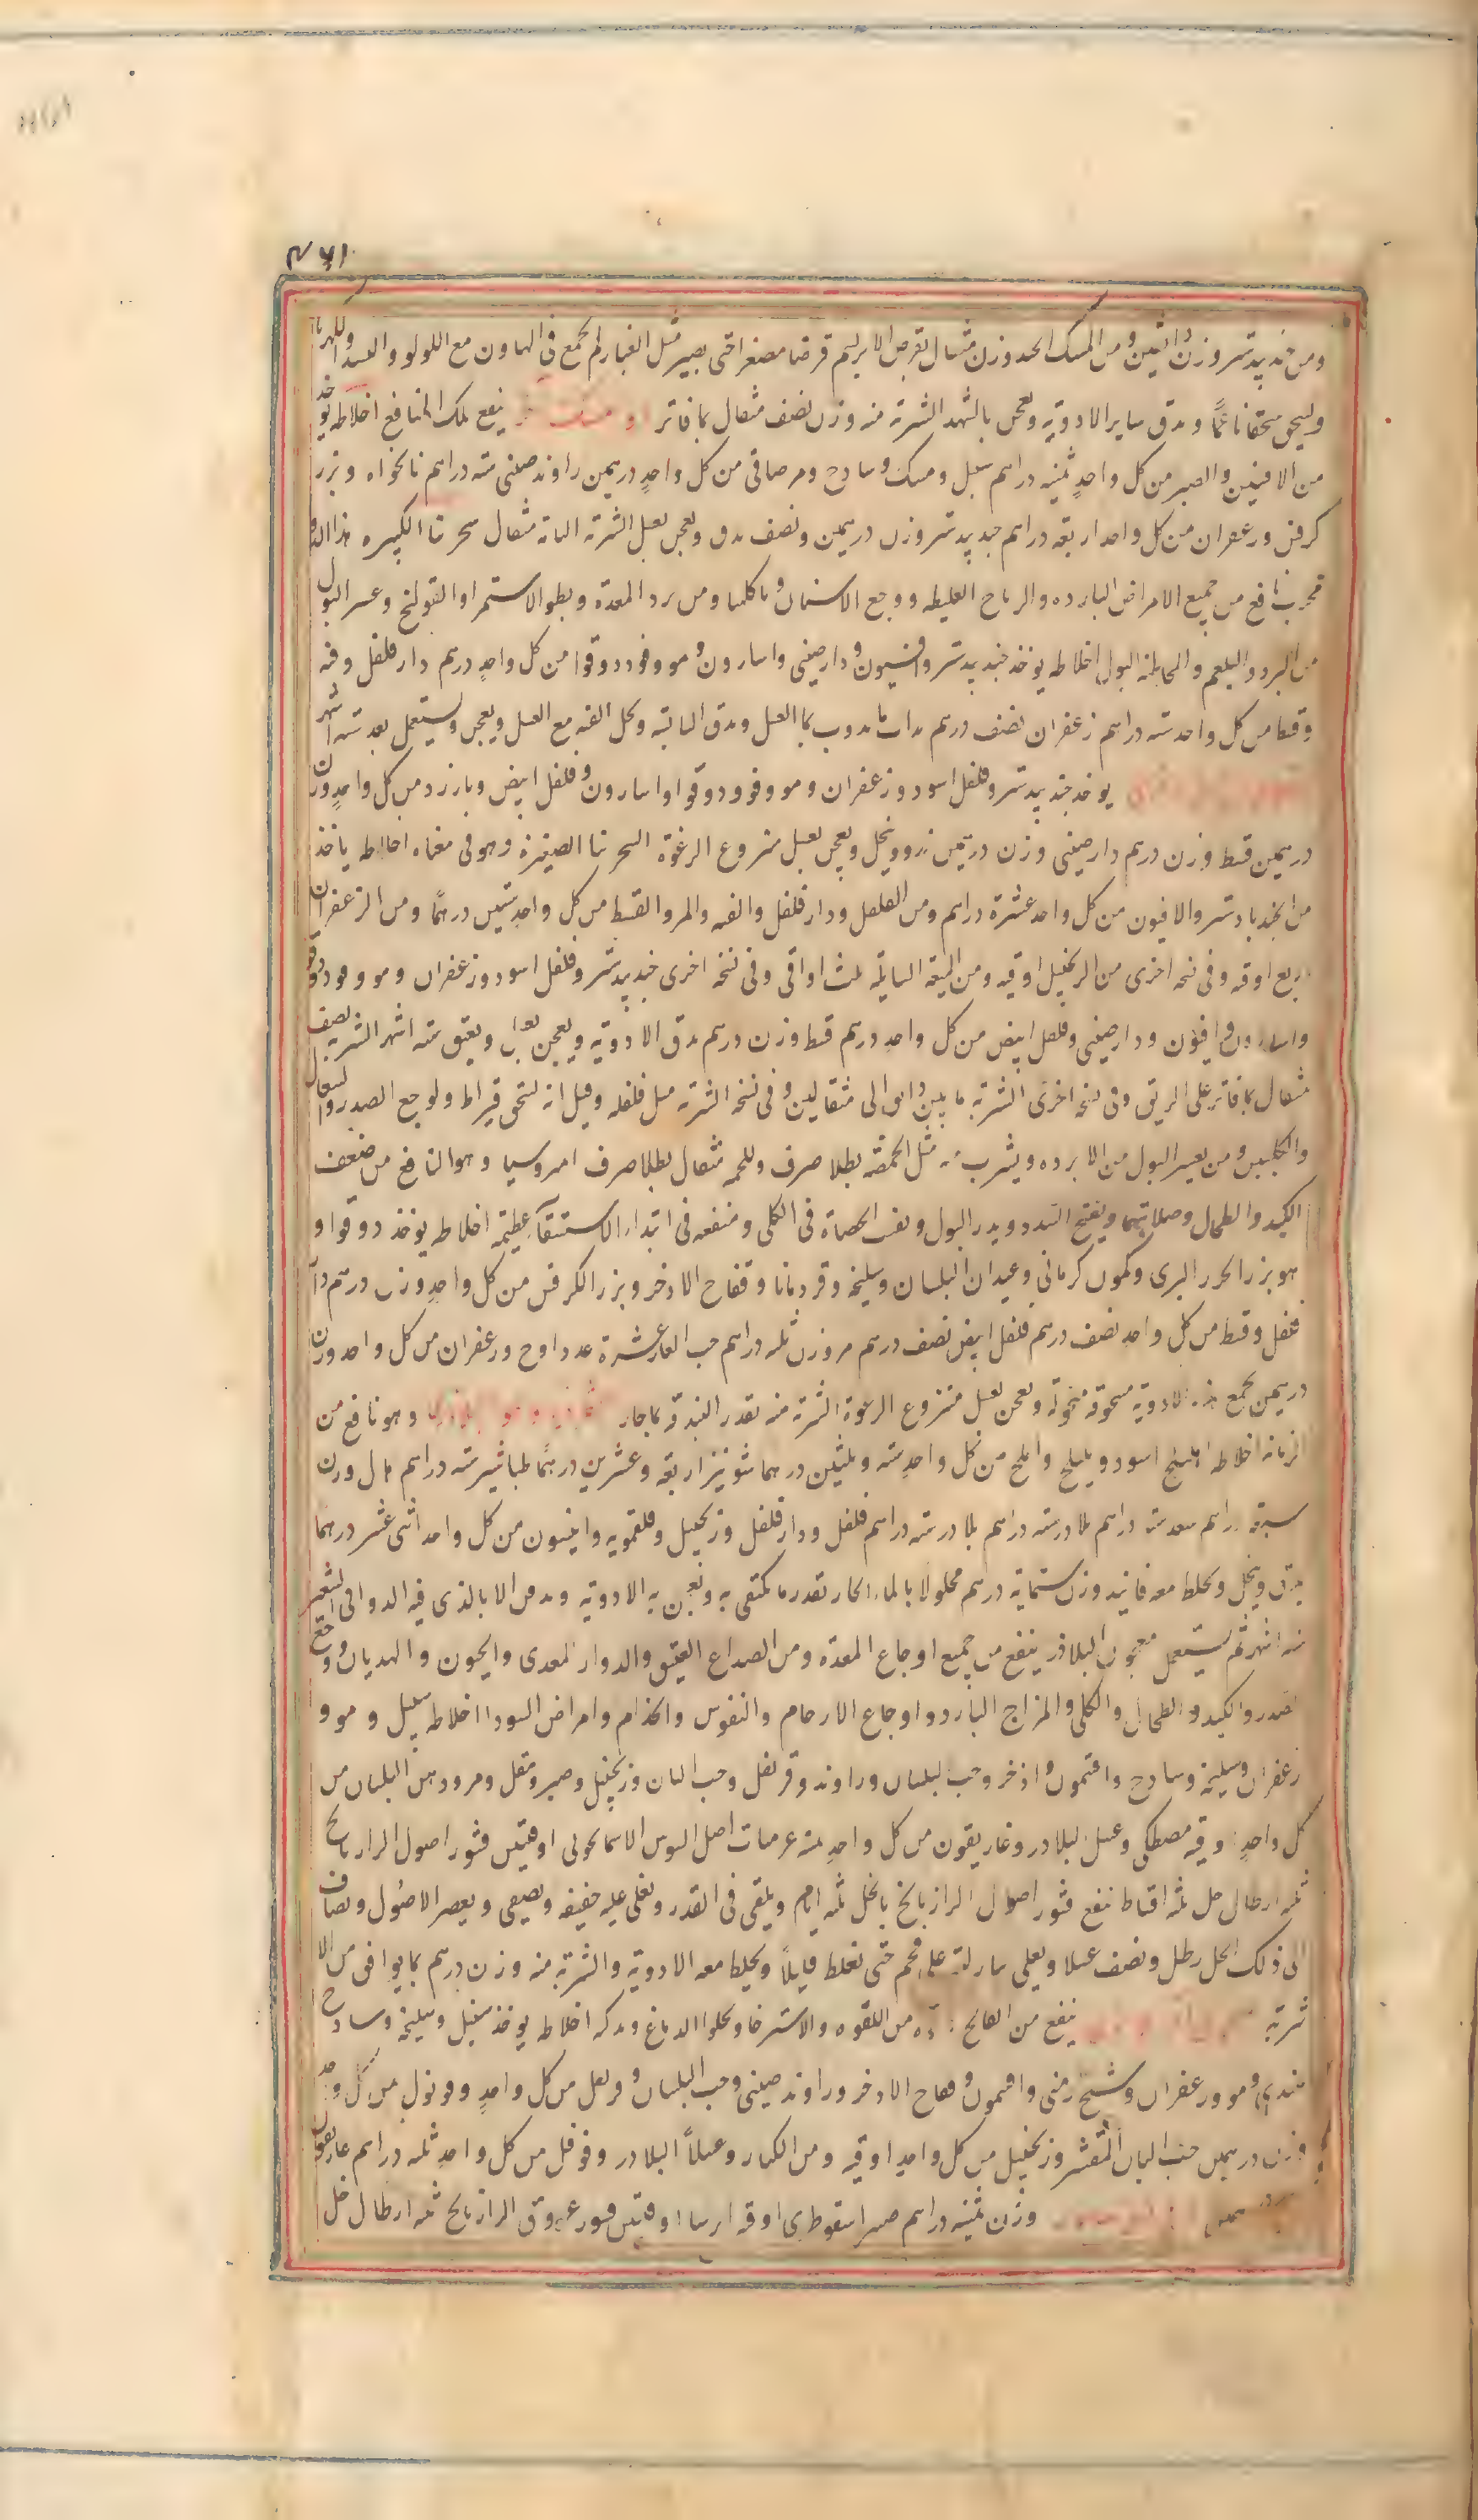 ٤٦١
ومن جندبيدستر وزن اثنين ومن المسك الجيد وزن مثقال يقرض الابريسم قرضا مصغرا حتى يصير مثل الغبار ثم يجمع فى الهاون مع اللولو والبسد والكهربا
وليسحق سحقا ناعمًا ويدق ساير الادوية ويعجن بالشهد الشربة منه وزن نصف مثقال بما فاتر ينفع تلك المنافع اخلاطه يوخذ
من الافسنتين والصبر من كل واحدٍ ثمنيه دراهم سنبل ومسك وسادج ومر صافى من كل واحدٍ درهمين راوند صينى سته دراهم نانخواه وبزر
كرفس وزعفران من كل واحد اربعة دراهم جندبيدستر وزن درهمين ونصف يدق ويعجن بعسل الشربة التامة مثقال سجرنيا الكبيره هذا الدوا
مجرب نافع من جميع الامراض البارده والرياح الغليظه ووجع الاسنان وتاكلها ومن برد المعدة وبطو الاستمرا والقولنج وعسر البول
من البرد والبلغم اخلاطه يوخذ جندبيدستر وافيون ودارصينى واسارون ومو وفو ودوقوا من كل واحدٍ درهم دارفلفل وقنه
وقسط من كل واحد سته دراهم زعفران نصف درهم يذاب ما يذوب بما العسل ويدق اليابسة وتحل القنه مع العسل ويعجن ويستعمل بعد سته اشهر
يوخذ جندبيدستر وفلفل اسود وزعفران ومو وفو ودوقوا واسارون وفلفل ابيض وبارزد من كل واحدٍ وزن
درهمين قسط وزن درهم دارصينى وزن درهمين يدق وينخل ويعجن بعسل منزوع الرغوة السجرنيا الصغيرة وهو فى معناه اخلاطه ياخذ
من الجندبادستر والافيون من كل واحد عشرة دراهم ومن الفلفل ودارفلفل والقنه والمر والقسط من كل واحد ستين درهمًا ومن الزعفران
ربع اوقيه وفى نسخه اخرى من الزنجبيل اوقيه ومن الميعة السايلة ثلث اواقى وفى نسخه اخرى جندبيدستر وفلفل اسود وزعفران ومو وفو ودوقوا
واسارون وافيون ودارصينى وفلفل ابيض من كل واحدٍ درهم قسط وزن درهم يدق الادوية ويعجن بعسل ويعتق سته اشهر الشربة نصف
مثقال بما فاتر على الريق وفى نسخه اخرى الشربة ما بين دانق الى مثقالين وفى نسخه الشربة مثل فلفله وقيل انه يستحق قيراط ولوجع الصدر والسعال
والكليتين ومن تعسير البول من الابرده ويشرب منه مثل الحمصة بطلا صرف وللحمى مثقال بطلا صرف امروسيا وهو النافع من ضعف
الكبد والطحال وصلابتهما ويفتح السدد ويدر البول ويفتت الحصاة فى الكلى ومنفعه فى ابتداء الاستسقآء عظيمة اخلاطه يوخذ دوقوا و
هو بزر الجزر البرى وكمون كرمانى وعيدان البلسان وسليخه وقردمانا وفقاح الاذخر وبزر الكرفس من كل واحدٍ وزن درهم دار
فلفل وقسط من كل واحد نصف درهم فلفل ابيض نصف درهم مر وزن ثلثه دراهم حب الغار عشرة عدد اوج وزعفران من كل واحد وزن
درهمين يجمع هذه الادوية مسحوقة منخولة وتعجن بعسل منزوع الرغوة الشربة منه بقدر البندقة بما حار وهو نافع من
اخلاطه اهليلج اسود وبليلج واملج من كل واحدٍ سته وثلثين درهما شونيز اربعة وعشرين درهمًا طباشير سته دراهم هال وزن
سبعة دراهم سعد سته دراهم بلادر سته دراهم فلفل ودارفلفل وزنجبيل وفلفمويه وانيسون من كل واحد اثنى عشر درهمًا
يدق وينخل ويخلط معه فانيد وزن ستمايه درهم محلولا بالماء الحار بقدر ما يكتفى به وتعجن به الادوية ويدهن الانا الذى فيه الدوا فى الشعير
سته اشهر ثم يستعمل معجون البلادر ينفع من جميع اوجاع المعدة ومن الصداع العتيق والدوار المعدى والجنون والهذيان ووجع
الصدر والكبد والطحال والكلى والمزاج البارد واوجاع الارحام والنقرس والجذام وامراض السودا اخلاطه سنبل ومو و
زعفران وسليخه وسادج وافتمون واذخر وحب البلسان وراوند وقرنفل وحب البان وزنجبيل وصبر ومقل ومر ودهن البلسان من
كل واحدٍ اوقيه مصطكى وعسل البلادر وغاريقون من كل واحدٍ اصل السوس الاسمانجونى اوقيتين قشور اصول الرازيانج
ثلثه ارطال خل ثلثه اقساط ينقع قشور اصول الرازيانج بالخل ثلثه ايام ويلقى فى القدر ويغلى غليه خفيفه ويصفى ويعصر الاصول ويضاف
الى ذلك الخل رطل ونصف عسلا ويغلى بنار لينه على فحم حتى يغلظ قليلاً ويخلط معه الادوية والشربة منه وزن درهم بما يوافى من الا
شربة ينفع من الفالج ومن اللقوه والاسترخا ويجلوا الدماغ ويذكيه اخلاطه يوخذ سنبل وسليخه وسادج
هندى ومو وزعفران وشيح ارمنى وافتمون وفقاح الاذخر وراوند صينى وحب البلسان وقرنفل من كل واحدٍ
وزن درهمين حب البان المقشر وزنجبيل من كل واحدٍ اوقيه ومن الكبار وعسل البلادر وفوفل من كل واحد ثلثه دراهم غاريقون
وزن ثمنيه دراهم صبر اسقوطرى اوقيه ايرسا اوقيتين قشور عروق الرازيانج ثلثه ارطال خل